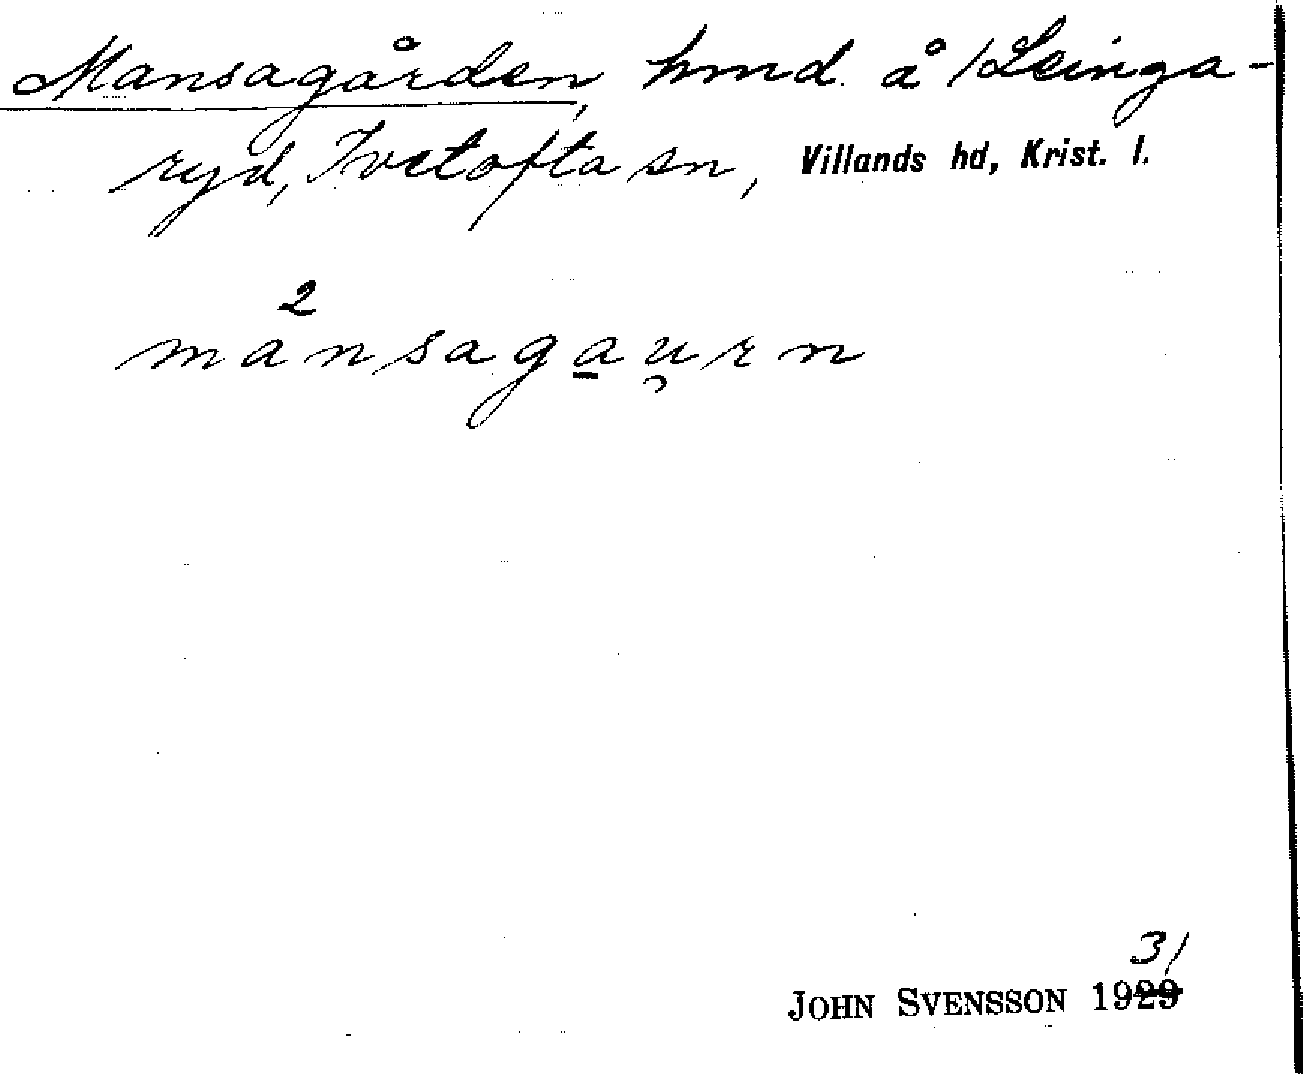 Mansagården, hmd. å /Leinga-
ryd, Ivetofta sn, Villands hd, Krist. l.
2
mansagau̢rn
31
JOHN SVENSSON 1929